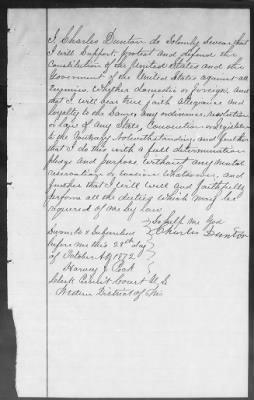 I Charles Dunton do Solemly Swear that
I will Support protect and defend the
Constitution of the United States and the
Government of the United States against all
Enemies Whether domestic or foreign and
that I will bear true faith allegiance and
loyalty to the Same, any ordinance, resolution
or law of any State, Convention or Legislature
to the Contrary Notwithstanding, and further
that I do this with a full determination
pledge and purpose Without any mental
reservation or evasion Whatsoever, and
further that I will Well and faithfully
perform all the duties which may be
required of me by law
So help me God
Charles Dunton
Sworn to & Subscribed
before me this 28th day
of October AD 1872
Harvey
Clerk Circuit Court U.S.
Western District of